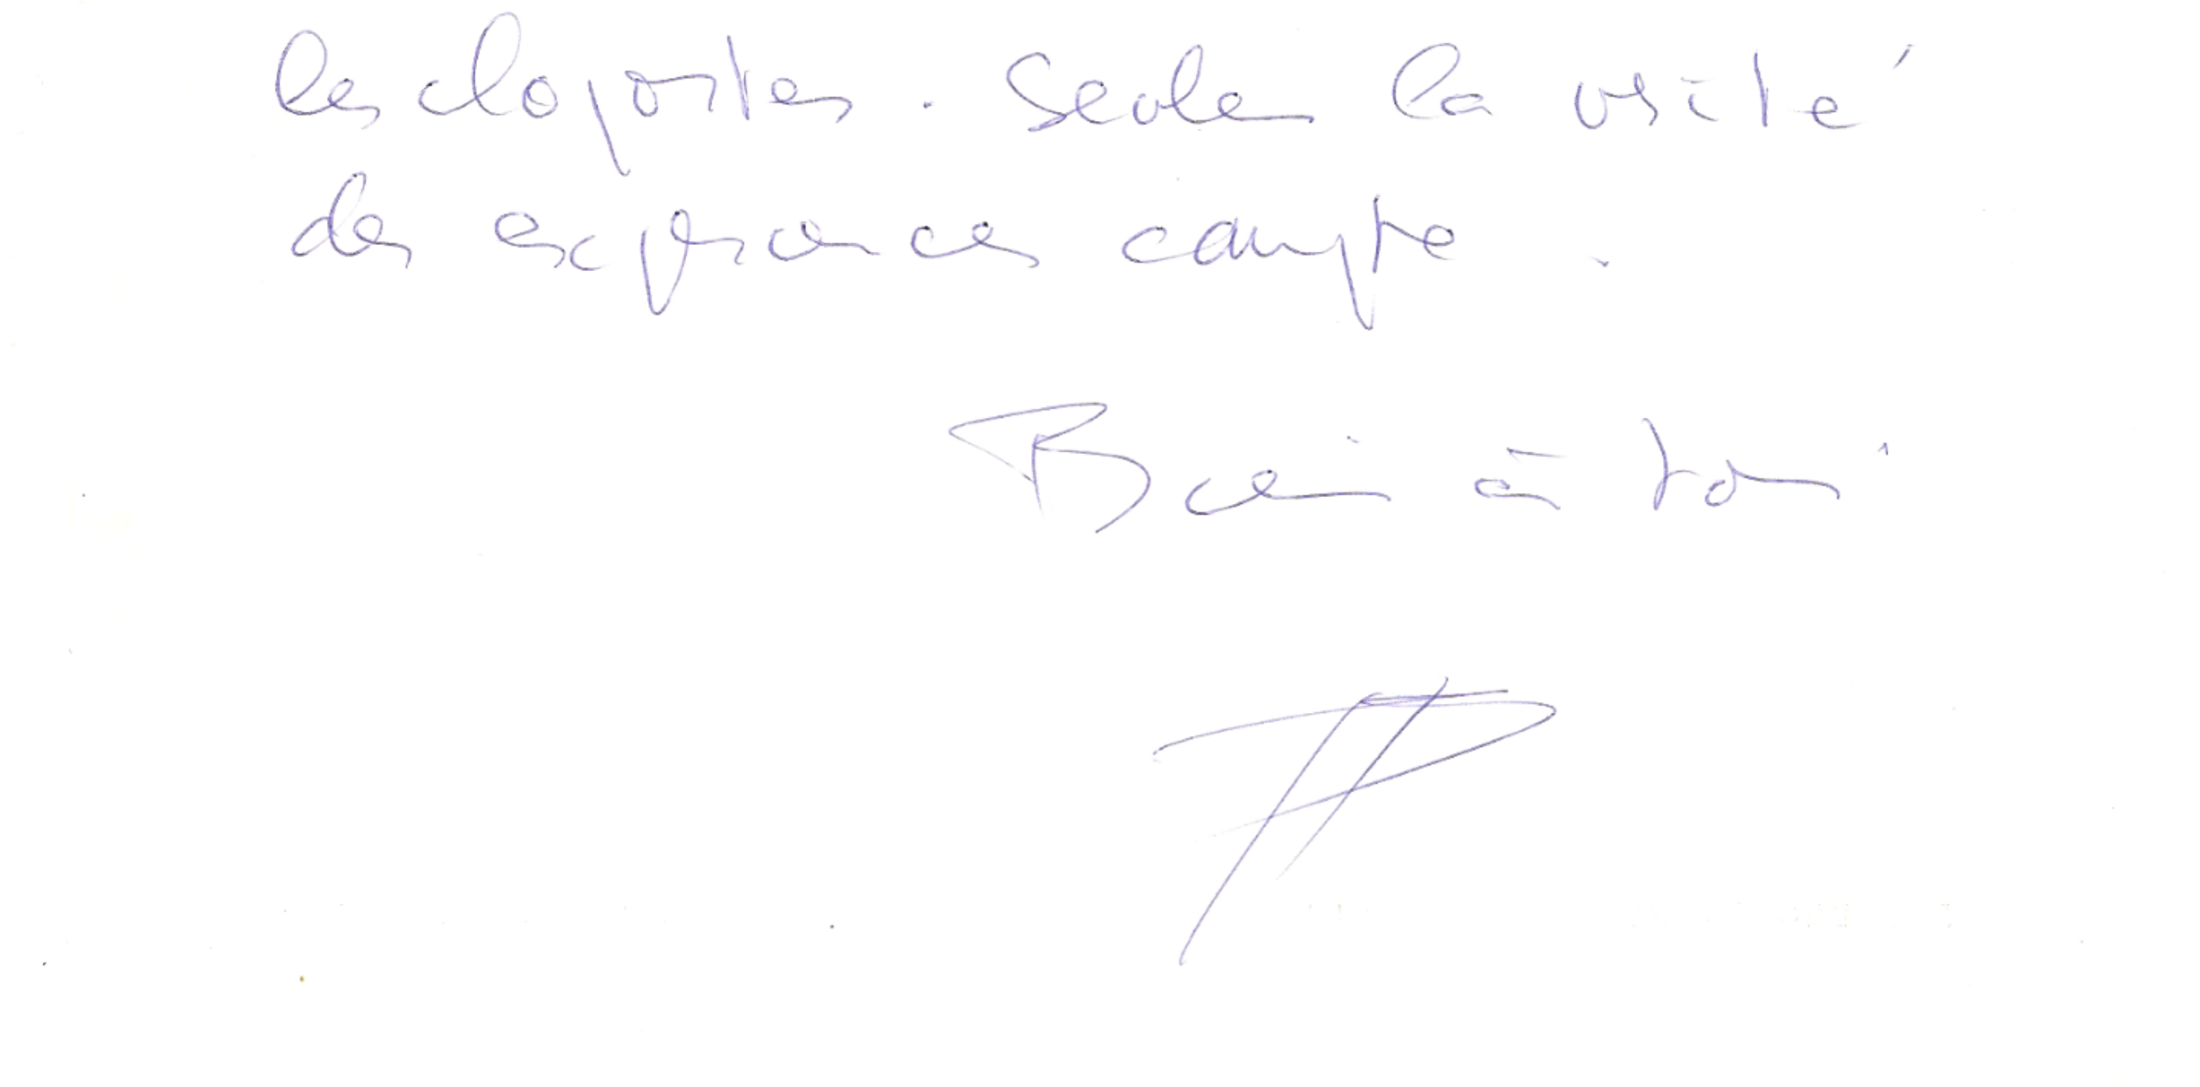 les cloportes. Seule la vérité
des expériences compte.
Bien à toi